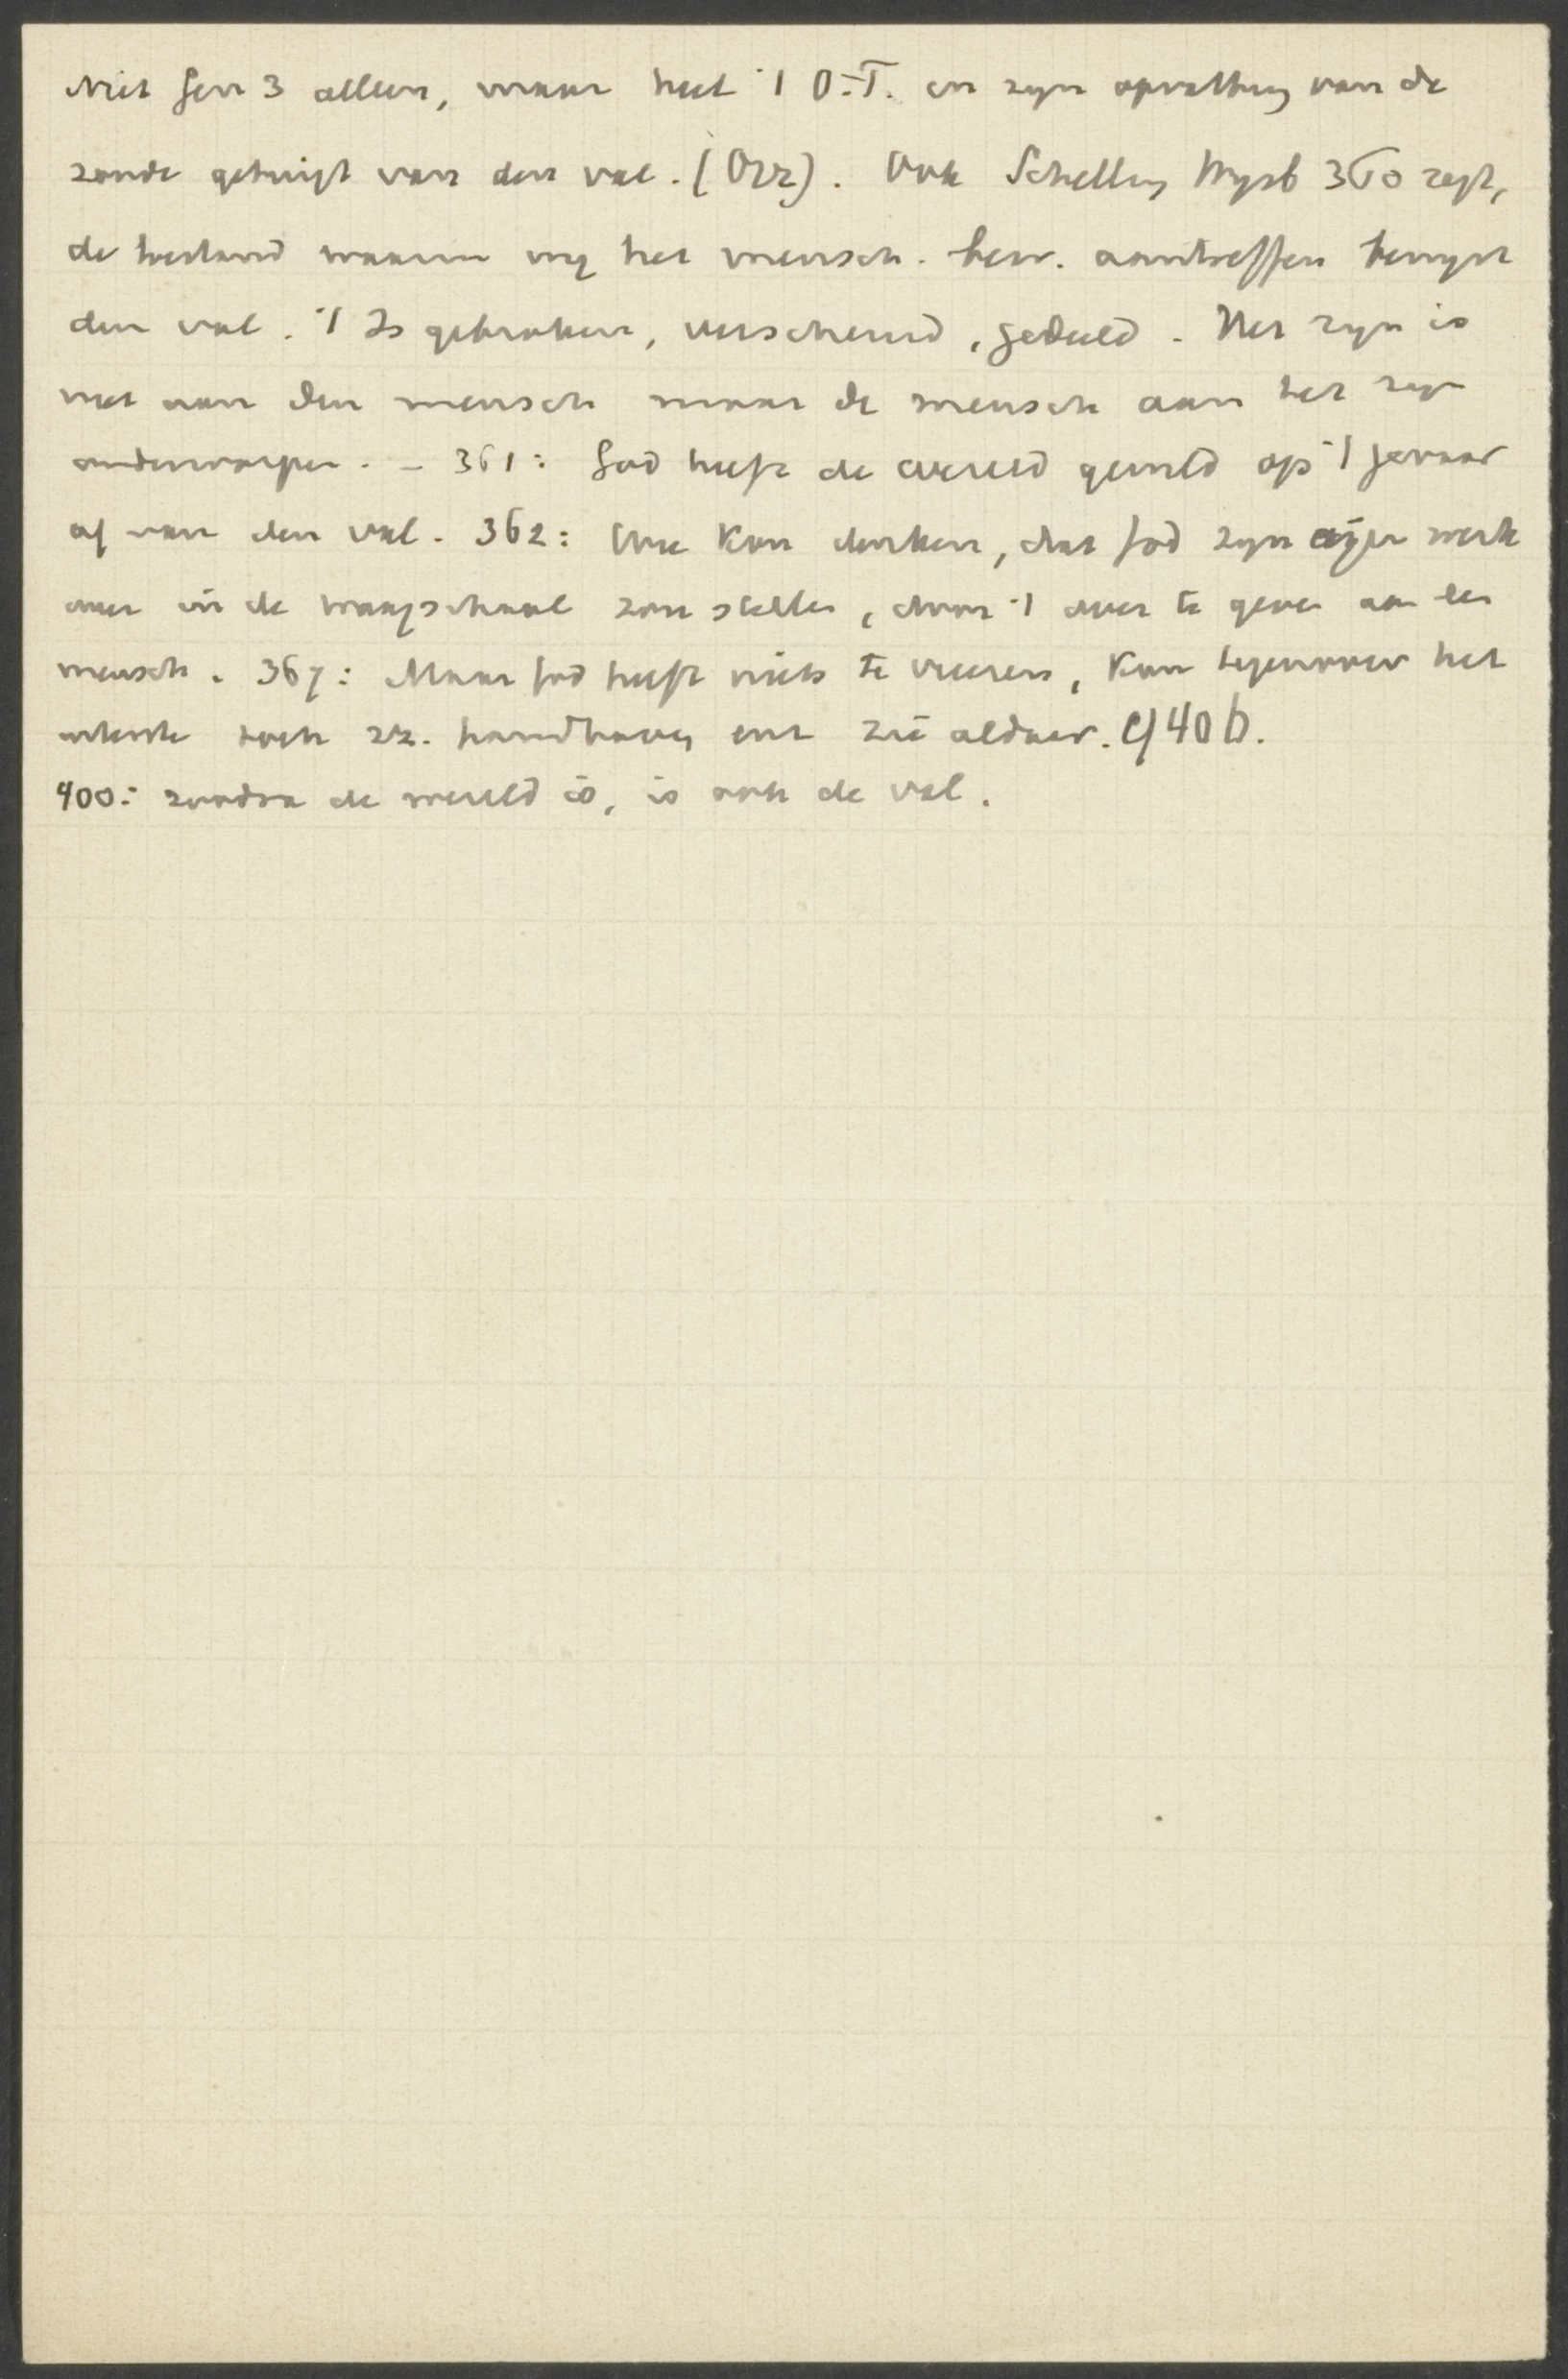 Niet Gen 3 alleen, maar heel 't O.T. en zijn opvatting van de
zonde getuigt van den val. (Orr). Ook Schelling 360 zegt,
de toestand waarin wij het mensch. bew. aantreffen bewijst
den val. 't Is gebroken, verscheurd, gedeeld. Het zijn is
niet aan den mensch maar de mensch aan het zijn
onderworpen. – 361: God heeft de wereld gewild op 't gevaar
af van den val. 362: Wie kan denken, dat God zijn eigen werk
in de waagschaal zou stellen, door 't over te geven aan een
mensch. 367: Maar God heeft niets te vreezen, kan tegenover het
toch zz. handhaven enz zie aldaar. cf 406.
400: zoodra de wereld is, is ook de val.